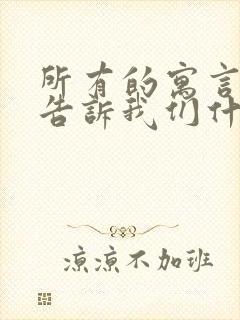 所有的寓言
告訴我们什
凉凉不加班